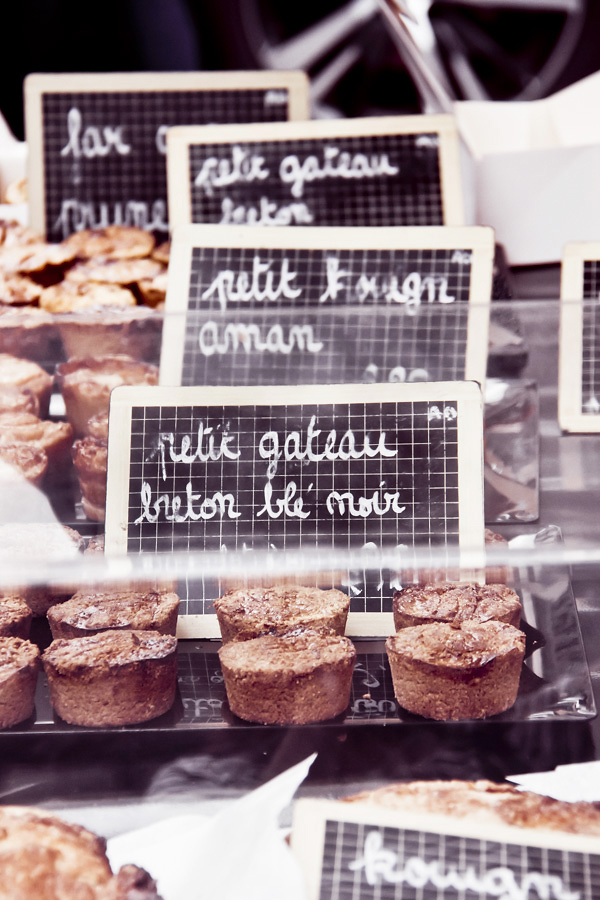 far
prune
petit gateau
breton
petit kougn
aman
petit gateau
breton blé noir
kougn